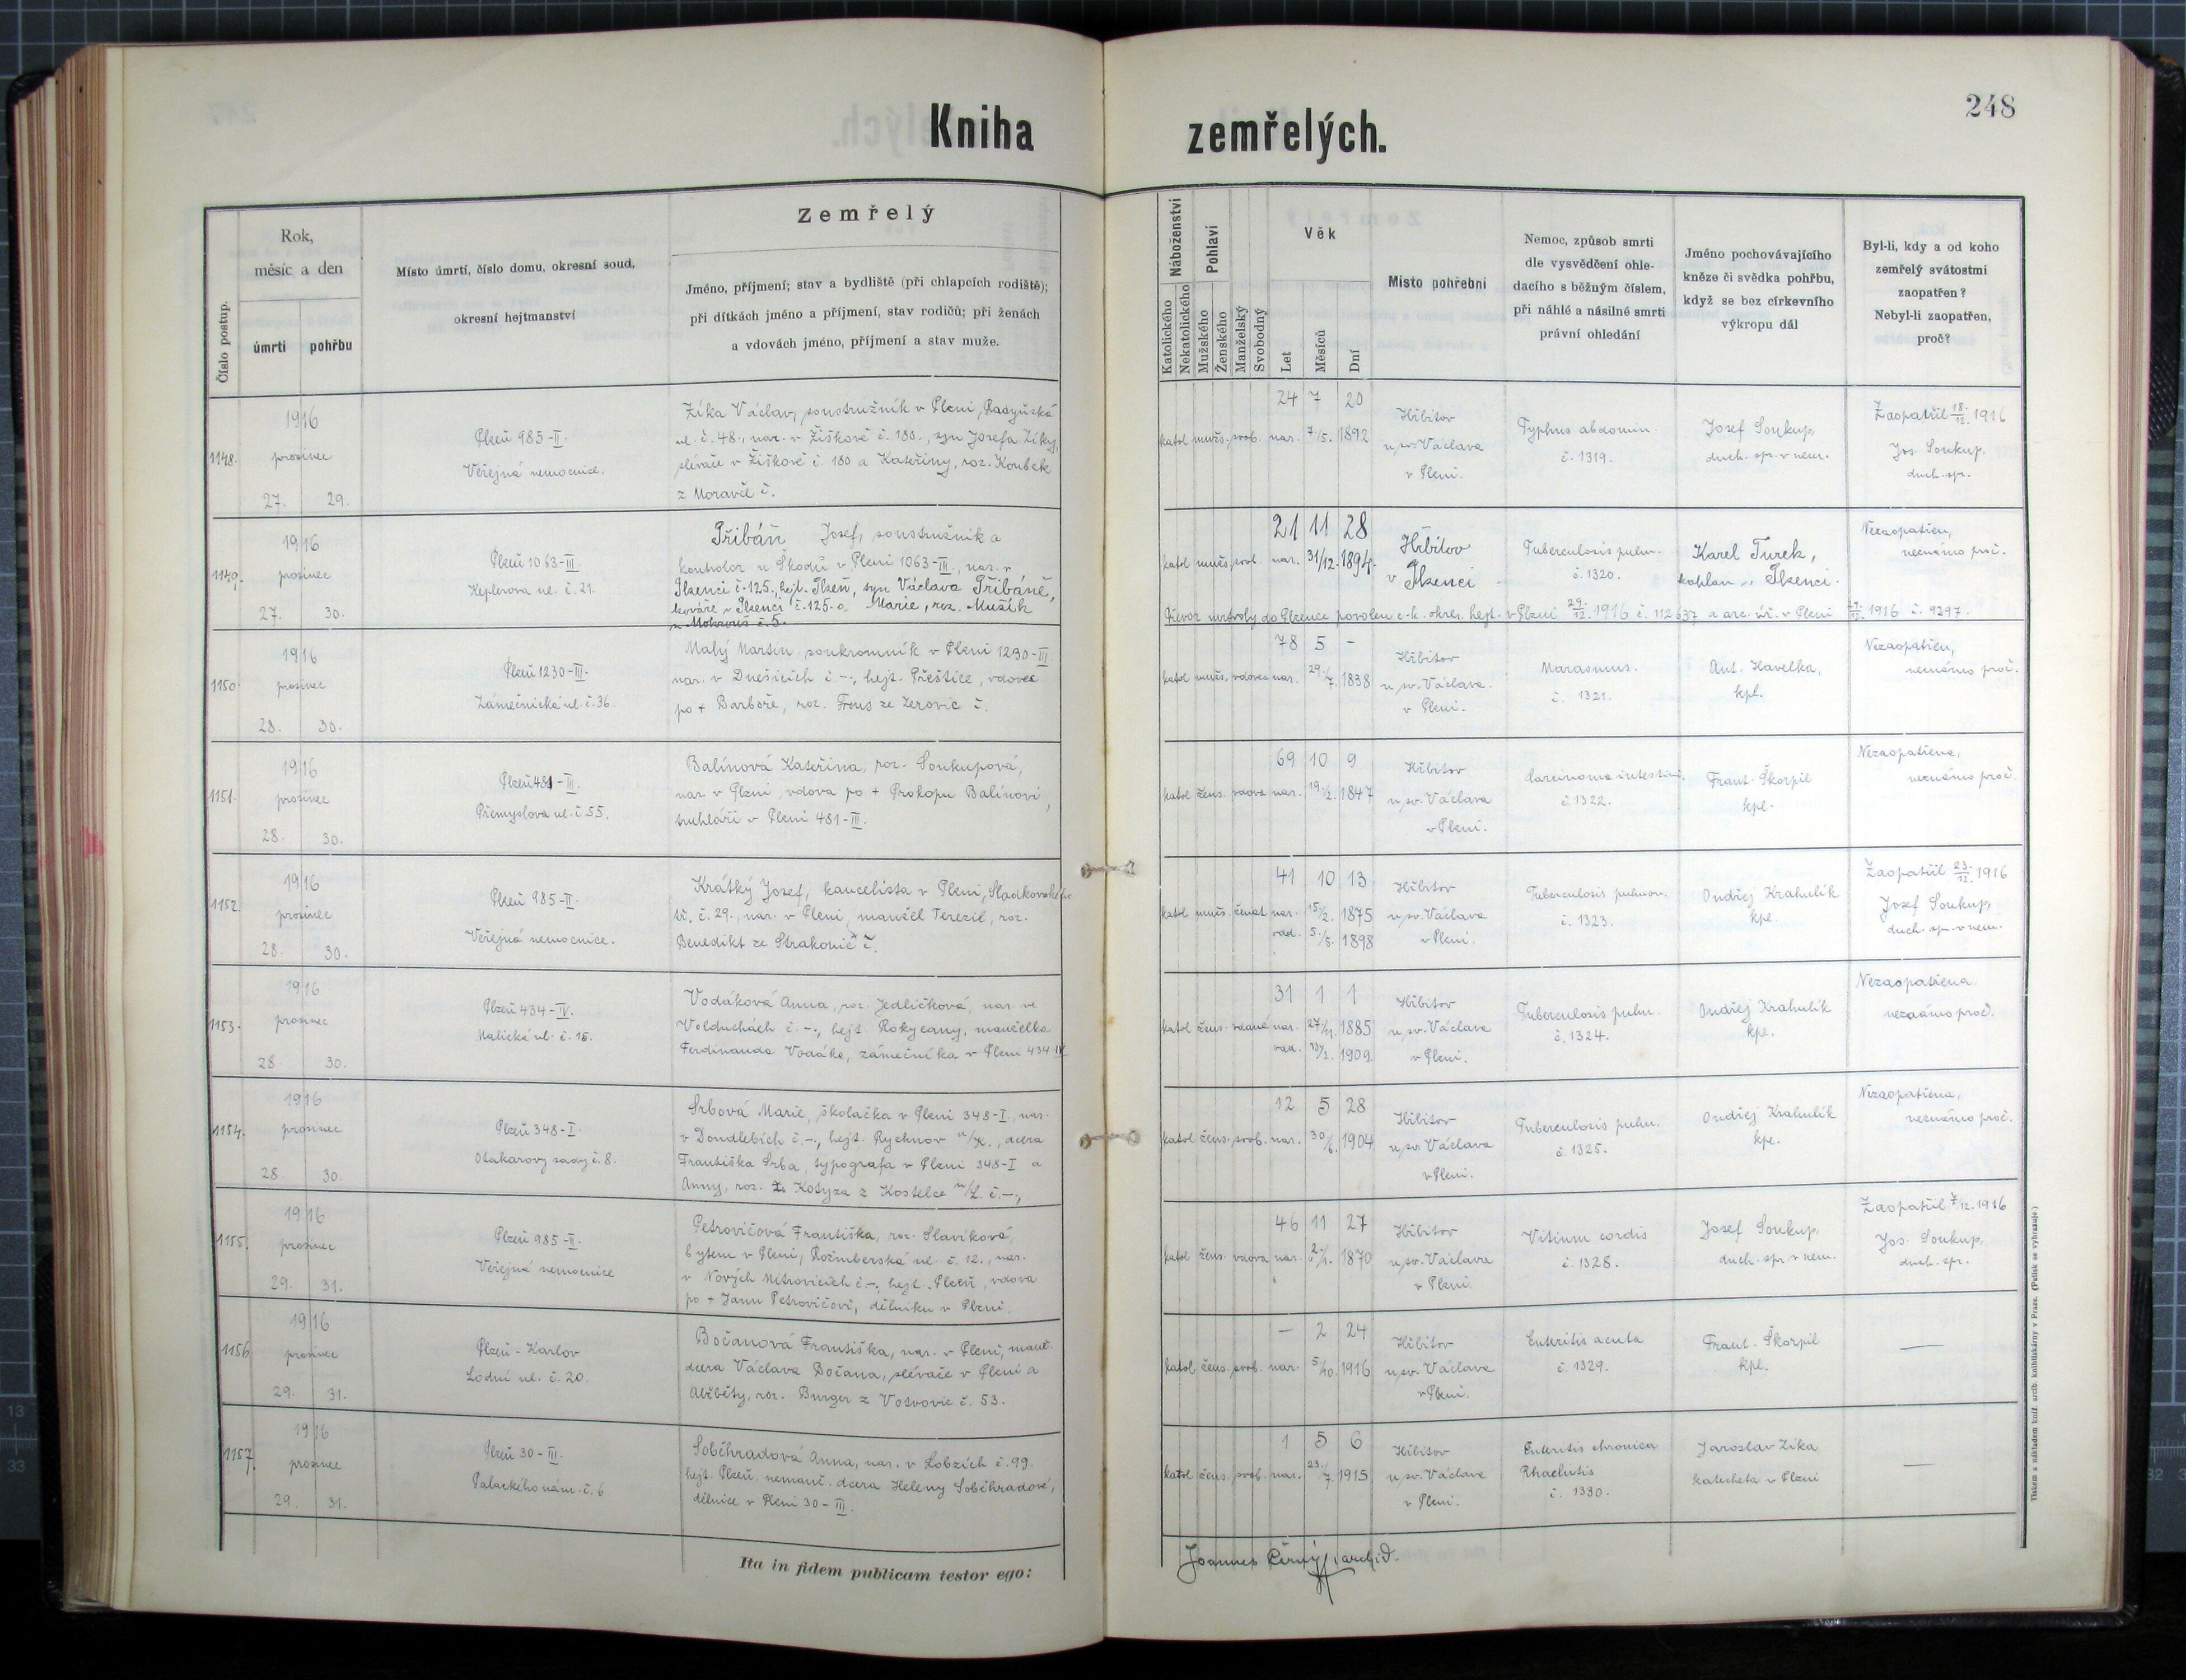 Kniha zemřelých.
248
Číslo postup.
Rok,
měsíc a den
úmrtí
pohřbu
Místo úmrtí, číslo domu, okresní soud,
okresní hejtmanství
Zemřelý
Jméno, příjmení; stav a bydliště (při chlapcích rodiště);
při dítkách jméno a příjmení, stav rodičů; při ženách
a vdovách jméno, příjmení a stav muže.
Náboženství
Katolického
Nekatolického
Pohlaví
Mužského
Ženského
Manželský
Svobodný
Věk
Let
Měsíců
Dní
Místo pohřební
Nemoc, způsob smrti
dle vysvědčení ohle-
dacího s běžným číslem,
při náhlé a násilné smrti
právní ohledání
Jméno pochovávajícího
kněze či svědka pohřbu,
když se bez církevního
výkropu dál
Byl-li, kdy a od koho
zemřelý svátostmi
zaopatřen?
Nebyl-li zaopatřen,
proč?
1148.
1916
prosinec
27. 29.
Plzeň 985-II.
Veřejná nemocnice.
Zíka Václav, soustružník v Plzni, Radyňská
ul. č. 48., nar. v Žižkově č. 180., syn Josefa Zíky,
slévače v Žižkově č. 180 a Kateřiny, roz. Koubek
z Moravče č.
katol mužs. svob. nar.
24 7 20
7/5. 1892
Hřbitov
u sv. Václava
v Plzni.
Typhus abdomin.
č. 1319.
Josef Soukup,
duch. spr. v nem.
Zaopatřil 18./12. 1916
Jos. Soukup,
duch. spr.
1149.
1916
prosinec
27. 30.
Plzeň 1063-III.
Keplerova ul. č. 21.
Přibáň Josef, soustružník a
kontrolor u Škodů v Plzni 1063-III., nar. v
Plzenci č. 125., hejt. Plzeň, syn Václava Přibáně,
kováře v Plzenci č. 125. a Marie, roz. Mužík
z Mokrouš č. 5.
katol mužs. svob. nar.
21 11 28
31/12. 1894.
Hřbitov
v Plzenci
Tuberculosis pulm.
č. 1320.
Karel Turek,
kaplan v Plzenci.
Nezaopatřen,
neznámo proč.
Převoz mrtvoly do Plzence povolen c. k. okres. hejt. v Plzni 29./12. 1916 č. 112637 a arc. úř. v Plzni 29./12. 1916 č. 9297.
1150.
1916
prosinec
28. 30.
Plzeň 1230-III.
Zámečnická ul. č. 36.
Malý Martin, soukromník v Plzni 1230-III.
nar. v Dnešicích č. -., hejt. Přeštice, vdovec
po + Barboře, roz. Frous ze Zerovic č.
katol mužs. vdovec nar.
78 5 -
29./7. 1838
Hřbitov
u sv. Václava.
v Plzni.
Marasmus.
č. 1321.
Ant. Havelka,
kpl.
Nezaopatřen,
neznámo proč.
1151.
1916
prosinec
28. 30.
Plzeň 481-III.
Přemyslova ul. č. 55.
Balínová Kateřina, roz. Soukupová,
nar. v Plzni, vdova po + Prokopu Balínovi,
truhláři v Plzni 481-III.
katol žens. vdova nar.
69 10 9
19./2. 1847
Hřbitov
u sv. Václava
v Plzni.
Carcinoma intestini.
č. 1322.
Frant. Škorpil
kpl.
Nezaopatřena,
neznámo proč.
1152.
1916
prosinec
28. 30.
Plzeň 985-II.
Veřejná nemocnice.
Krátký Josef, kancelista v Plzni, Sladkovského
tř. č. 29., nar. v Plzni, manžel Terezie, roz.
Benedikt ze Strakonic č.
katol mužs. ženat nar.
41 10 13
15/2. 1875
odd. 5./5. 1898
Hřbitov
u sv. Václava
v Plzni.
Tuberculosis pulmon.
č. 1323.
Ondřej Krahulík
kpl.
Zaopatřil 23./12. 1916
Josef Soukup,
duch. spr. v nem.
1153.
1916
prosinec
28. 30.
Plzeň 434-IV.
Malická ul. č. 15.
Vodáková Anna, roz. Jedličková, nar. ve
Volduchách č. -., hejt. Rokycany, manželka
Ferdinanda Vodáka, zámečníka v Plzni 434 IV
katol žens. vdaná nar.
31 1 1
27/11. 1885
odd. 1909
Hřbitov
u sv. Václava
v Plzni.
Tuberculosis pulm.
č. 1324.
Ondřej Krahulík
kpl.
Nezaopatřena
neznámo proč.
1154.
1916
prosinec
28. 30.
Plzeň 348-I.
Otakarovy sady č. 8.
Srbová Marie, školačka v Plzni 348-I., nar.
v Doudlebích č. -., hejt. Rychnov n/K., dcera
Františka Srba, typografa v Plzni 348-I a
Anny, roz. Kotyza z Kostelce n/L. č. -.,
katol žens. svob. nar.
12 5 28
30/6. 1904
Hřbitov
u sv. Václava
v Plzni.
Tuberculosis pulm.
č. 1325.
Ondřej Krahulík
kpl.
Nezaopatřena,
neznámo proč.
1155.
1916
prosinec
29. 31.
Plzeň 985-II.
Veřejná nemocnice
Petrovičová Františka, roz. Slavíková,
bytem v Plzni, Rožmberská ul. č. 12., nar.
v Nových Mitrovicích č. -., hejt. Plzeň, vdova
po + Janu Petrovičovi, dělníku v Plzni.
katol žens. vdova nar.
46 11 27
2./1. 1870
Hřbitov
u sv. Václava
v Plzni
Vitium cordis
č. 1328.
Josef Soukup,
duch. spr. v nem.
Zaopatřil 7/12. 1916
Jos. Soukup,
duch. spr.
1156
1916
prosinec
29. 31.
Plzeň - Karlov
Lodní ul. č. 20.
Bočanová Františka, nar. v Plzni, manž.
dcera Václava Bočana, slévače v Plzni a
Alžběty, roz. Burger z Votvovic č. 53.
katol žens. svob. nar.
- 2 24
5/10. 1916
Hřbitov
u sv. Václava
v Plzni.
Enteritis acuta
č. 1329.
Frant. Škorpil
kpl.
—
1157.
1916
prosinec
29. 31.
Plzeň 30-III.
Palackého nám. č. 6
Soběhradová Anna, nar. v Lobzích č. 99.
hejt. Plzeň, nemanž. dcera Heleny Soběhradové,
dělnice v Plzni 30-III.
katol žens. svob. nar.
1 5 6
23./7. 1915
Hřbitov
u sv. Václava
v Plzni.
Enteritis chronica
Rhachitis
č. 1330.
Jaroslav Zíka
katecheta v Plzni
—
Ita in fidem publicam testor ego:
Joannes Černý, archid.
Tiskem a nákladem kníž. arcib. knihtiskárny v Praze. (Patisk se vyhrazuje.)